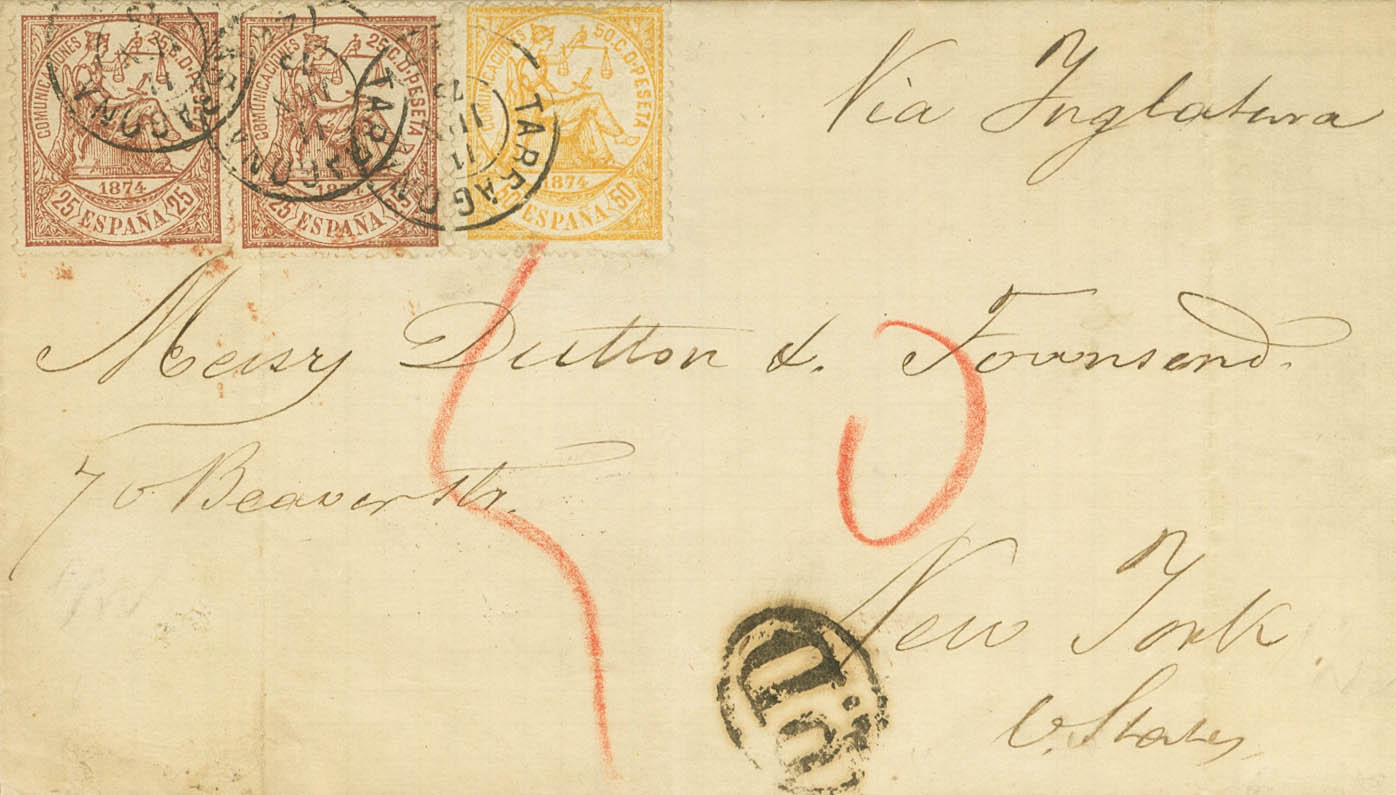 COMUNICACIONES 25 C. D. PESETA
1874
25 ESPAÑA 25
COMUNICACIONES 25 C. D. PESETA
25 ESPAÑA 25
COMUNICACIONES 50 C. D. PESETA
1874
ESPAÑA 50
TARRAGONA
TARRAGONA
TARRAGONA
Via Inglaterra
Messrs Dutton &. Townsend.
70 Beaver Str.
New York
U. States